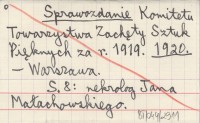 Sprawozdanie Komitetu
Towarzystwa Zachęty Sztuk
Pięknych za r. 1919. 1920.
— Warszawa.
S. 8: nekrolog Jana
Małachowskiego.